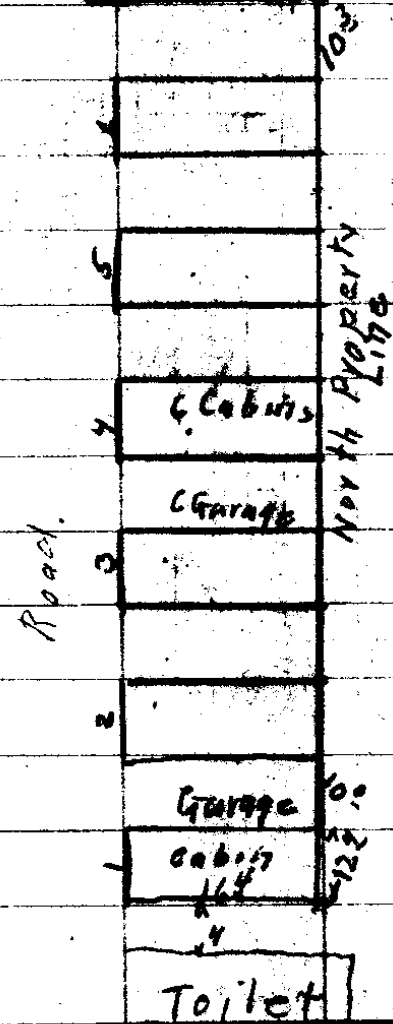 10³
6
5
North Property
Line
4
6 Cabins
6 Garage
3
Road.
2
Garage
10.0
1
Cabin
12²
16⁴
4
Toilet